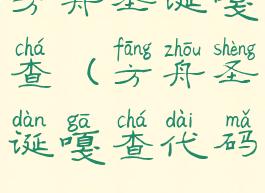 方舟圣诞嘎
chá fāng zhōu shèng
查（方舟圣
dàn gā chá dài mǎ
诞嘎查代码